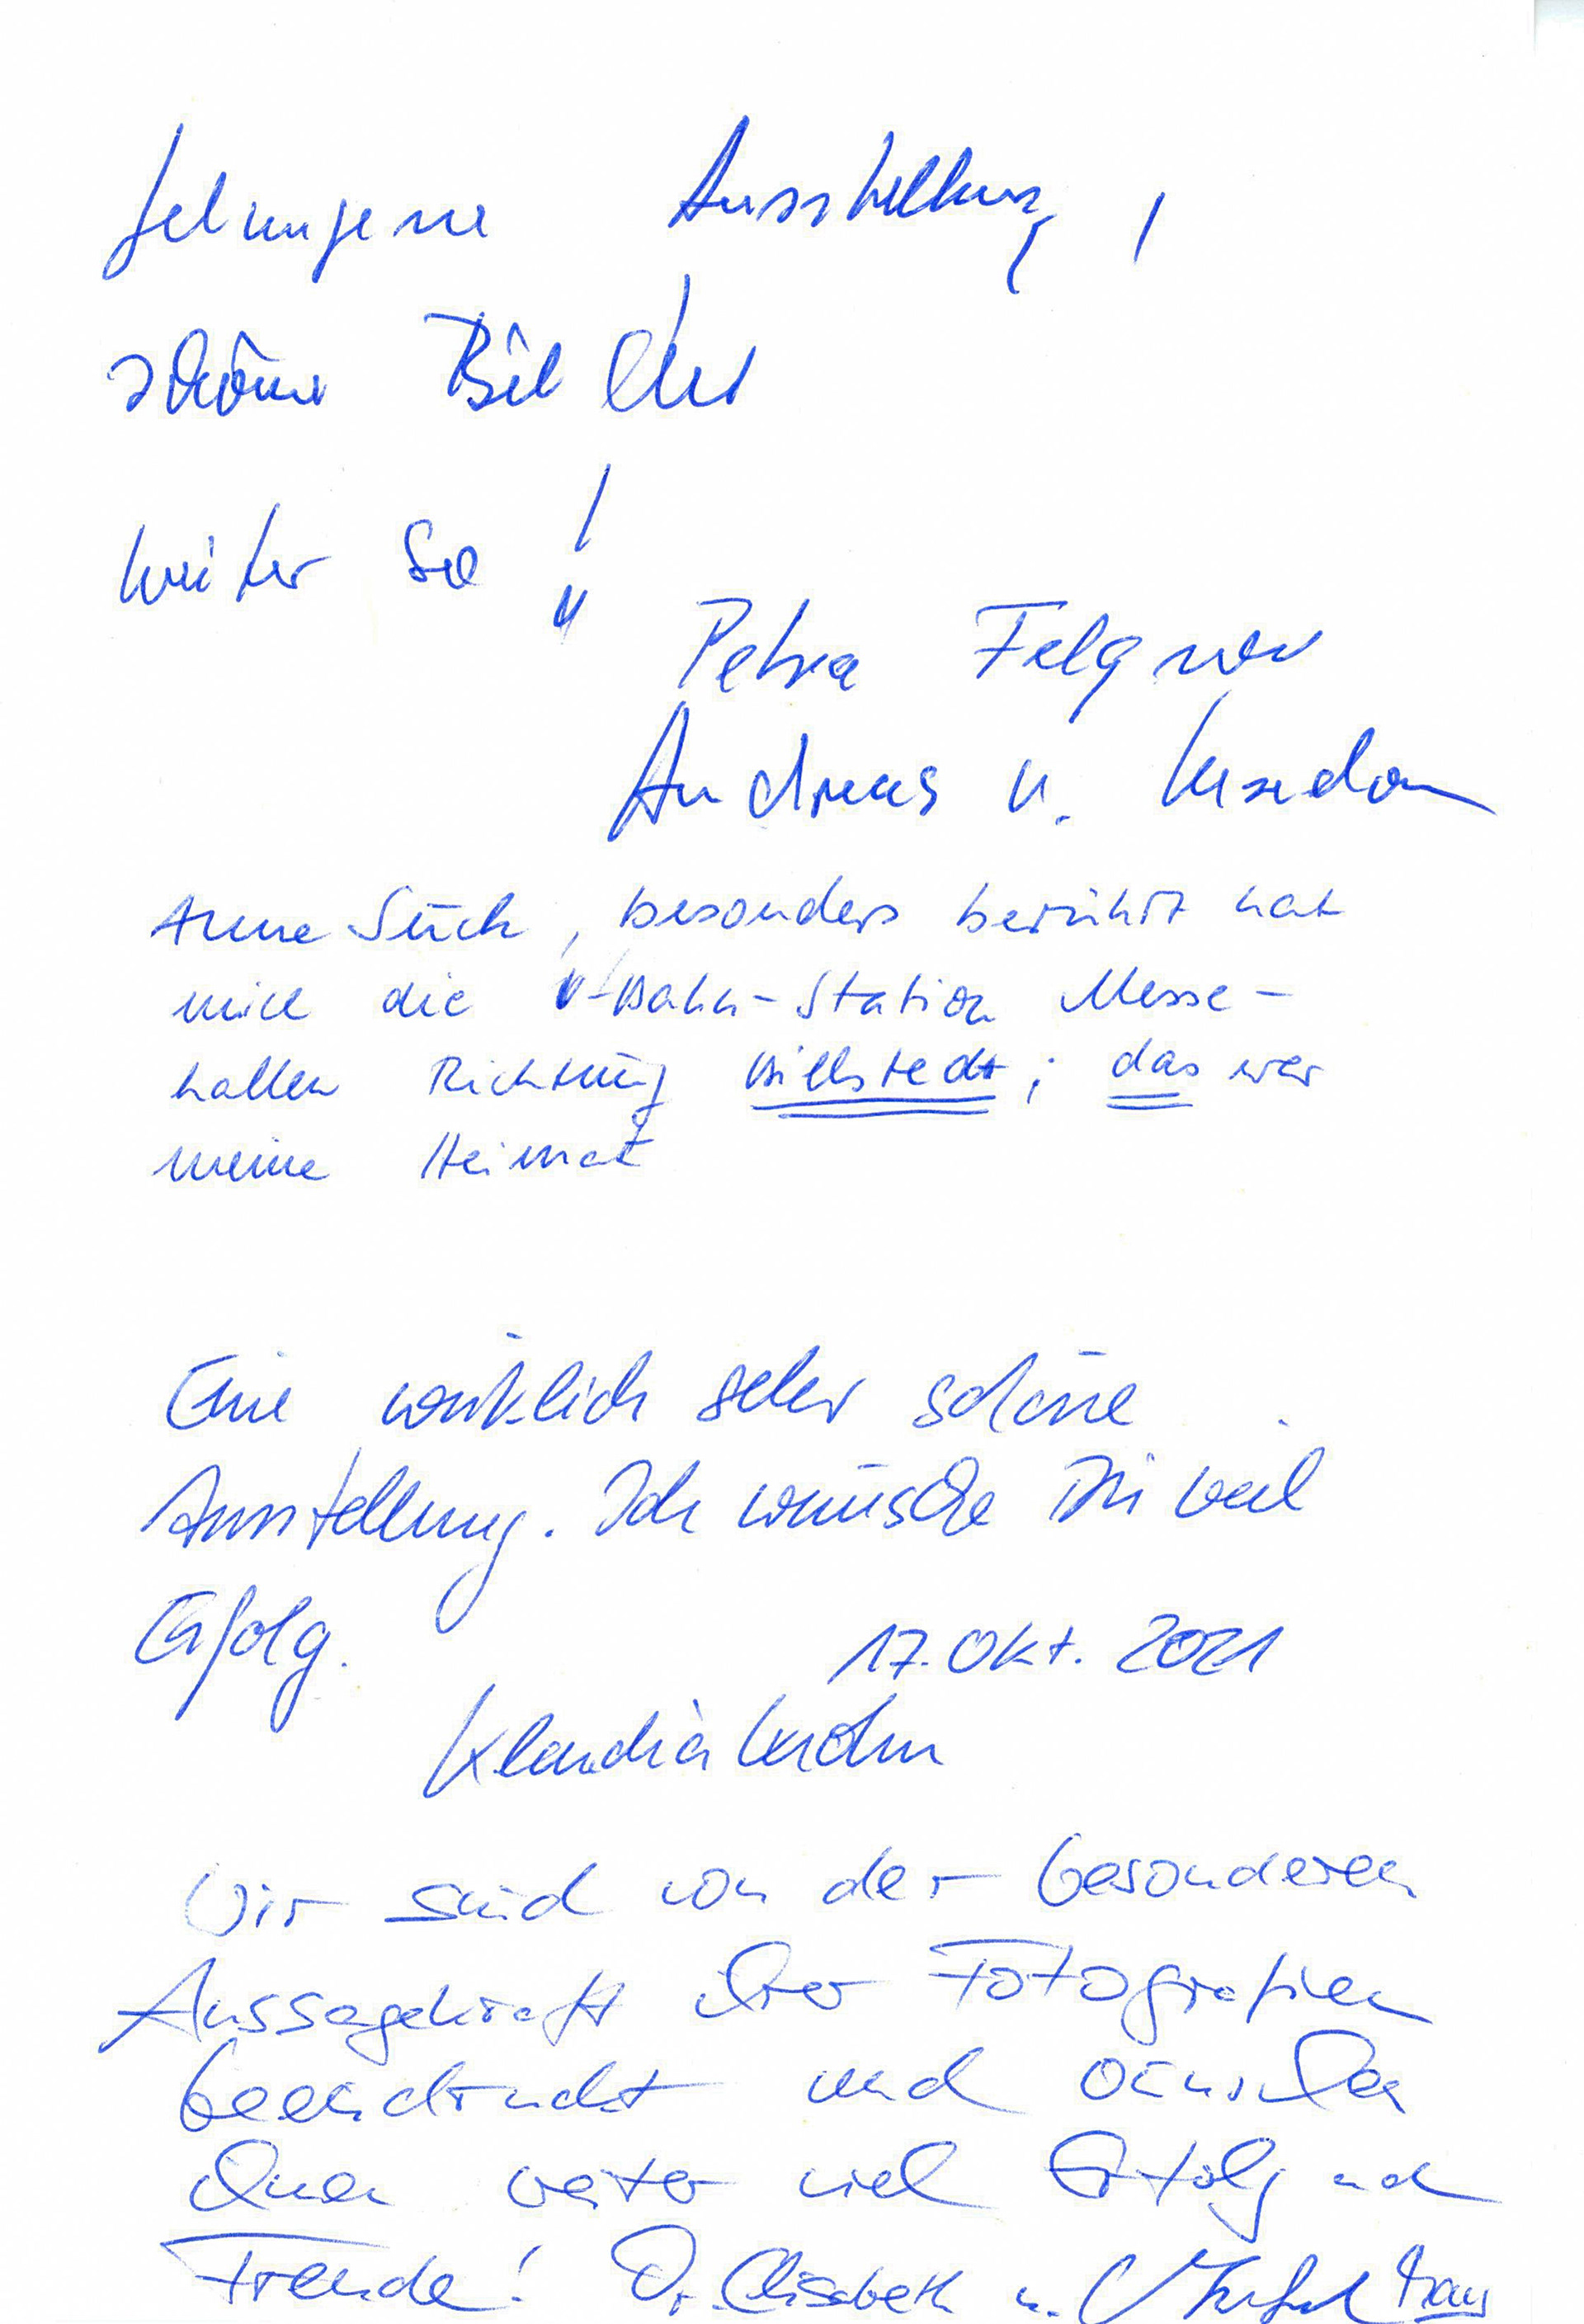 gelungene Ausstellung,
schöne Bilder
weiter so!!
Petra Felgner
Andreas v.
Anne Süch, besonders berührt hat
mich die U-Bahn-Station Messe-
hallen Richtung Billstedt; das war
meine Heimat
Eine wirklich sehr schöne
Ausstellung. Ich wünsche Dir viel
Erfolg.
17. Okt. 2021
Klaudia Krohn
Wir sind von der besonderen
Aussagekraft Ihrer Fotografien
beeindruckt und wünschen
Ihnen weiter viel Erfolg und
Freude! Dr. Elisabeth u.